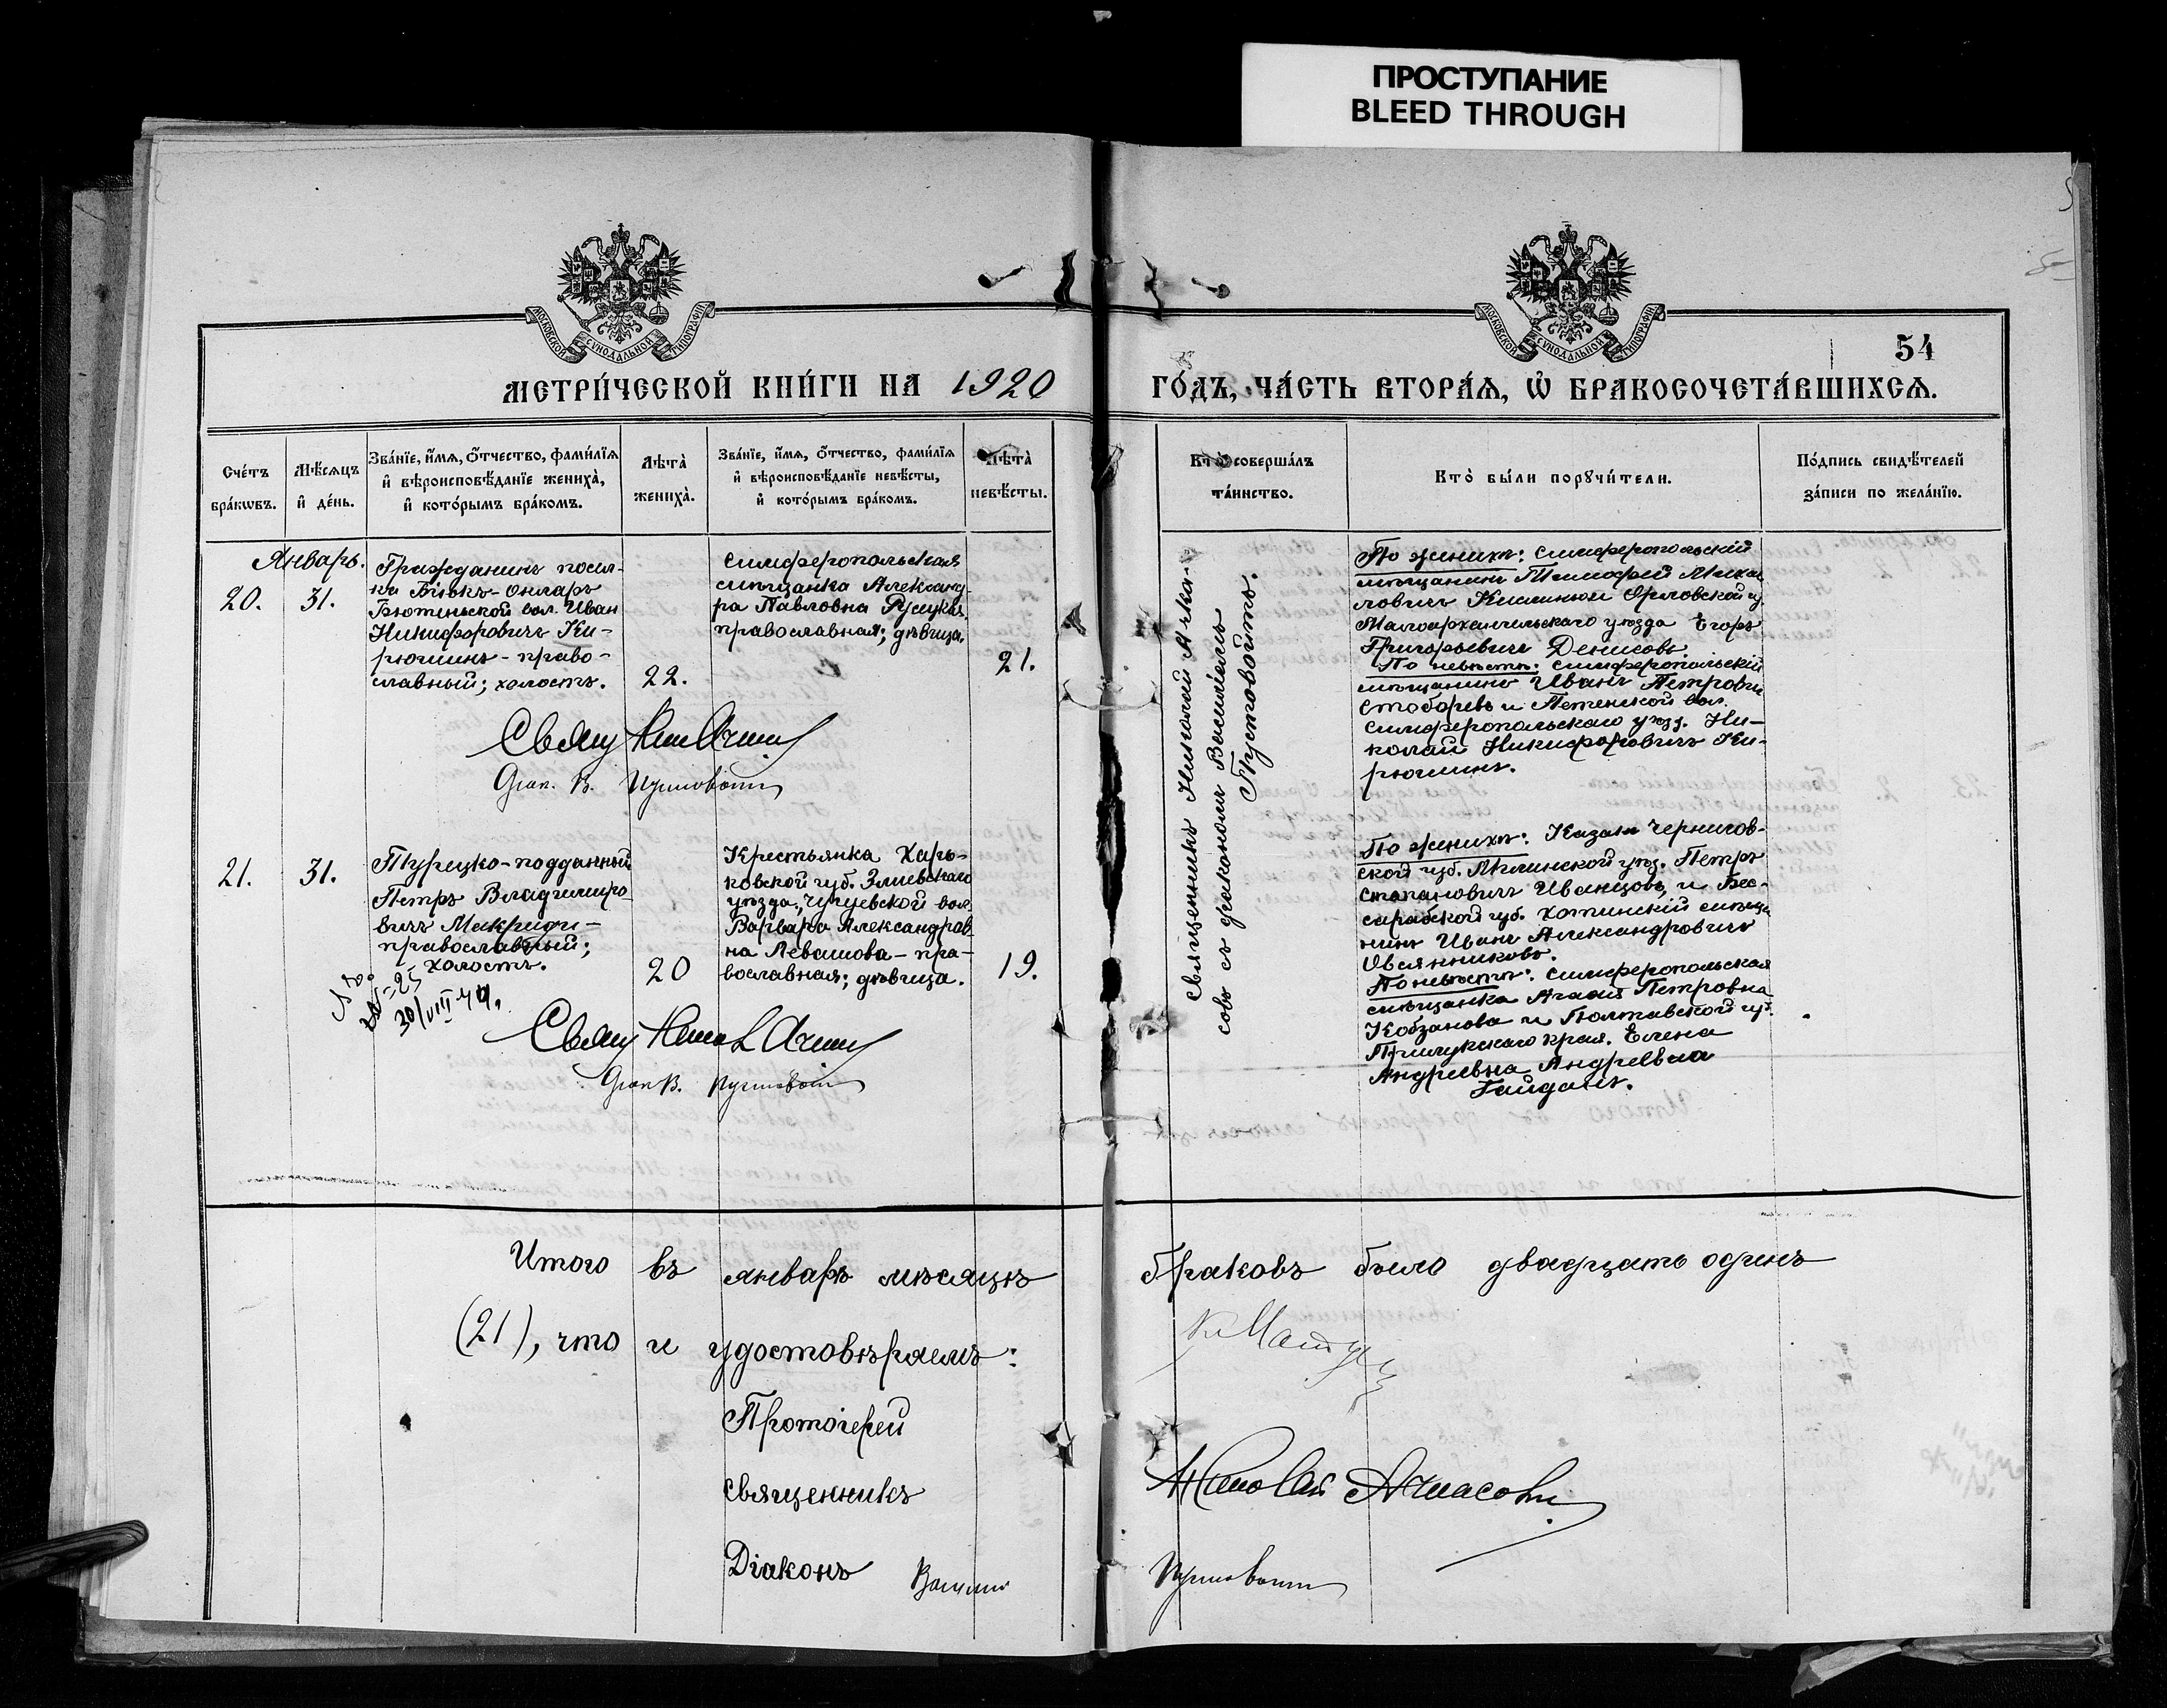 ПРОСТУПАНИЕ
BLEED THROUGH
МОСКОВСКОЙ СУНОДАЛЬНОЙ ТИПОГРАФІИ
МОСКОВСКОЙ СУНОДАЛЬНОЙ ТИПОГРАФІИ
54
МЕТРИ́ЧЕСКОЙ КНИ́ГИ НА 1920 ГО́ДЪ, ЧА́СТЬ ВТОРА́Ѧ, Ѡ҆ БРАКОСОЧЕТА́ВШИХСѦ.
Сче́тъ
бра́кѡвъ.
Мѣ́сѧцъ
и҆ де́нь.
Зва́нїе, и҆́мѧ, о҆́тчество, фами́лїѧ
и҆ вѣроисповѣ́данїе жениха̀,
и҆ кото́рымъ бра́комъ.
Лѣта̀
жениха̀.
Зва́нїе, и҆́мѧ, о҆́тчество, фами́лїѧ
и҆ вѣроисповѣ́данїе невѣ́сты,
и҆ кото́рымъ бра́комъ.
Лѣта̀
невѣ́сты.
Кто̀ соверша́лъ
та́инство.
Кто̀ бы́ли порꙋчи́тели.
По́дпись свидѣ́телей
за́писи по жела́нїю.
Январь.
20.
31.
Гражданинъ посел-
ка Біюкъ-Онларъ
вол. Иван
Никифоровичъ Ки-
рюшинъ - право-
славный; холостъ.
22.
Симферопольская
мѣщанка Александ-
ра Павловна
православная; дѣвица.
21.
Священникъ Николай Ачка-
совъ съ діакономъ Василіемъ
Пустовойтъ.
По женихѣ: Симферопольский
мѣщанинъ Тимофей Михай
ловичъ Орловской г.
Малоархангельскаго уѣзда Егоръ
Григорьевичъ Денисовъ.
По невѣстѣ: Симферопольскій
мѣщанинъ Иванъ Петрович
и вол.
Симферопольскаго уѣзд. Ни-
колай Никифоровичъ Ки-
рюшинъ.
Свящ
Діак. В. Пустовойт
21.
31.
Турецко-подданный
Петръ Владимиро-
вичъ Макриди -
православный;
холостъ.
20
30/VIII
Крестьянка Харь-
ковской губ. Зміевскаго
уѣзда, Чугуевской вол.
Варвара Александров-
на Левашова - пра-
вославная; дѣвица.
19.
По женихѣ: Казакъ Чернигов-
ской губ. Мглинской уѣз. Петръ
Степановичъ Иванцовъ, и Бес-
сарабской губ. Хотинскій мѣща
нинъ Иванъ Александровичъ
Овсянниковъ.
По невѣстѣ: Симферопольская
мѣщанка Агафія Петровна
Кобзанова и Полтавской губ.
Прилукскаго края. Елена
Андреевна Андреевна
Гайданъ.
Свящ
Діак В. Пустовойт
Итого въ январѣ мѣсяцѣ браковъ было двадцать одинъ
(21), что и удостовѣряемъ:
Протоіерей
Священникъ Николай Ачкасовъ
Діаконъ Василій Пустовойт